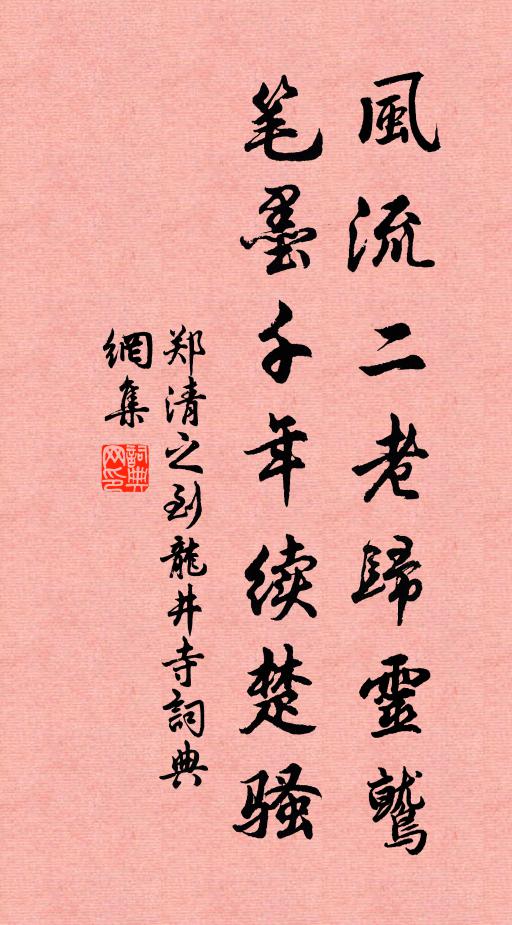 風流二老歸靈鷲
笔墨千年续楚骚
郑清之到龍井寺詞典
網集
詞典网印